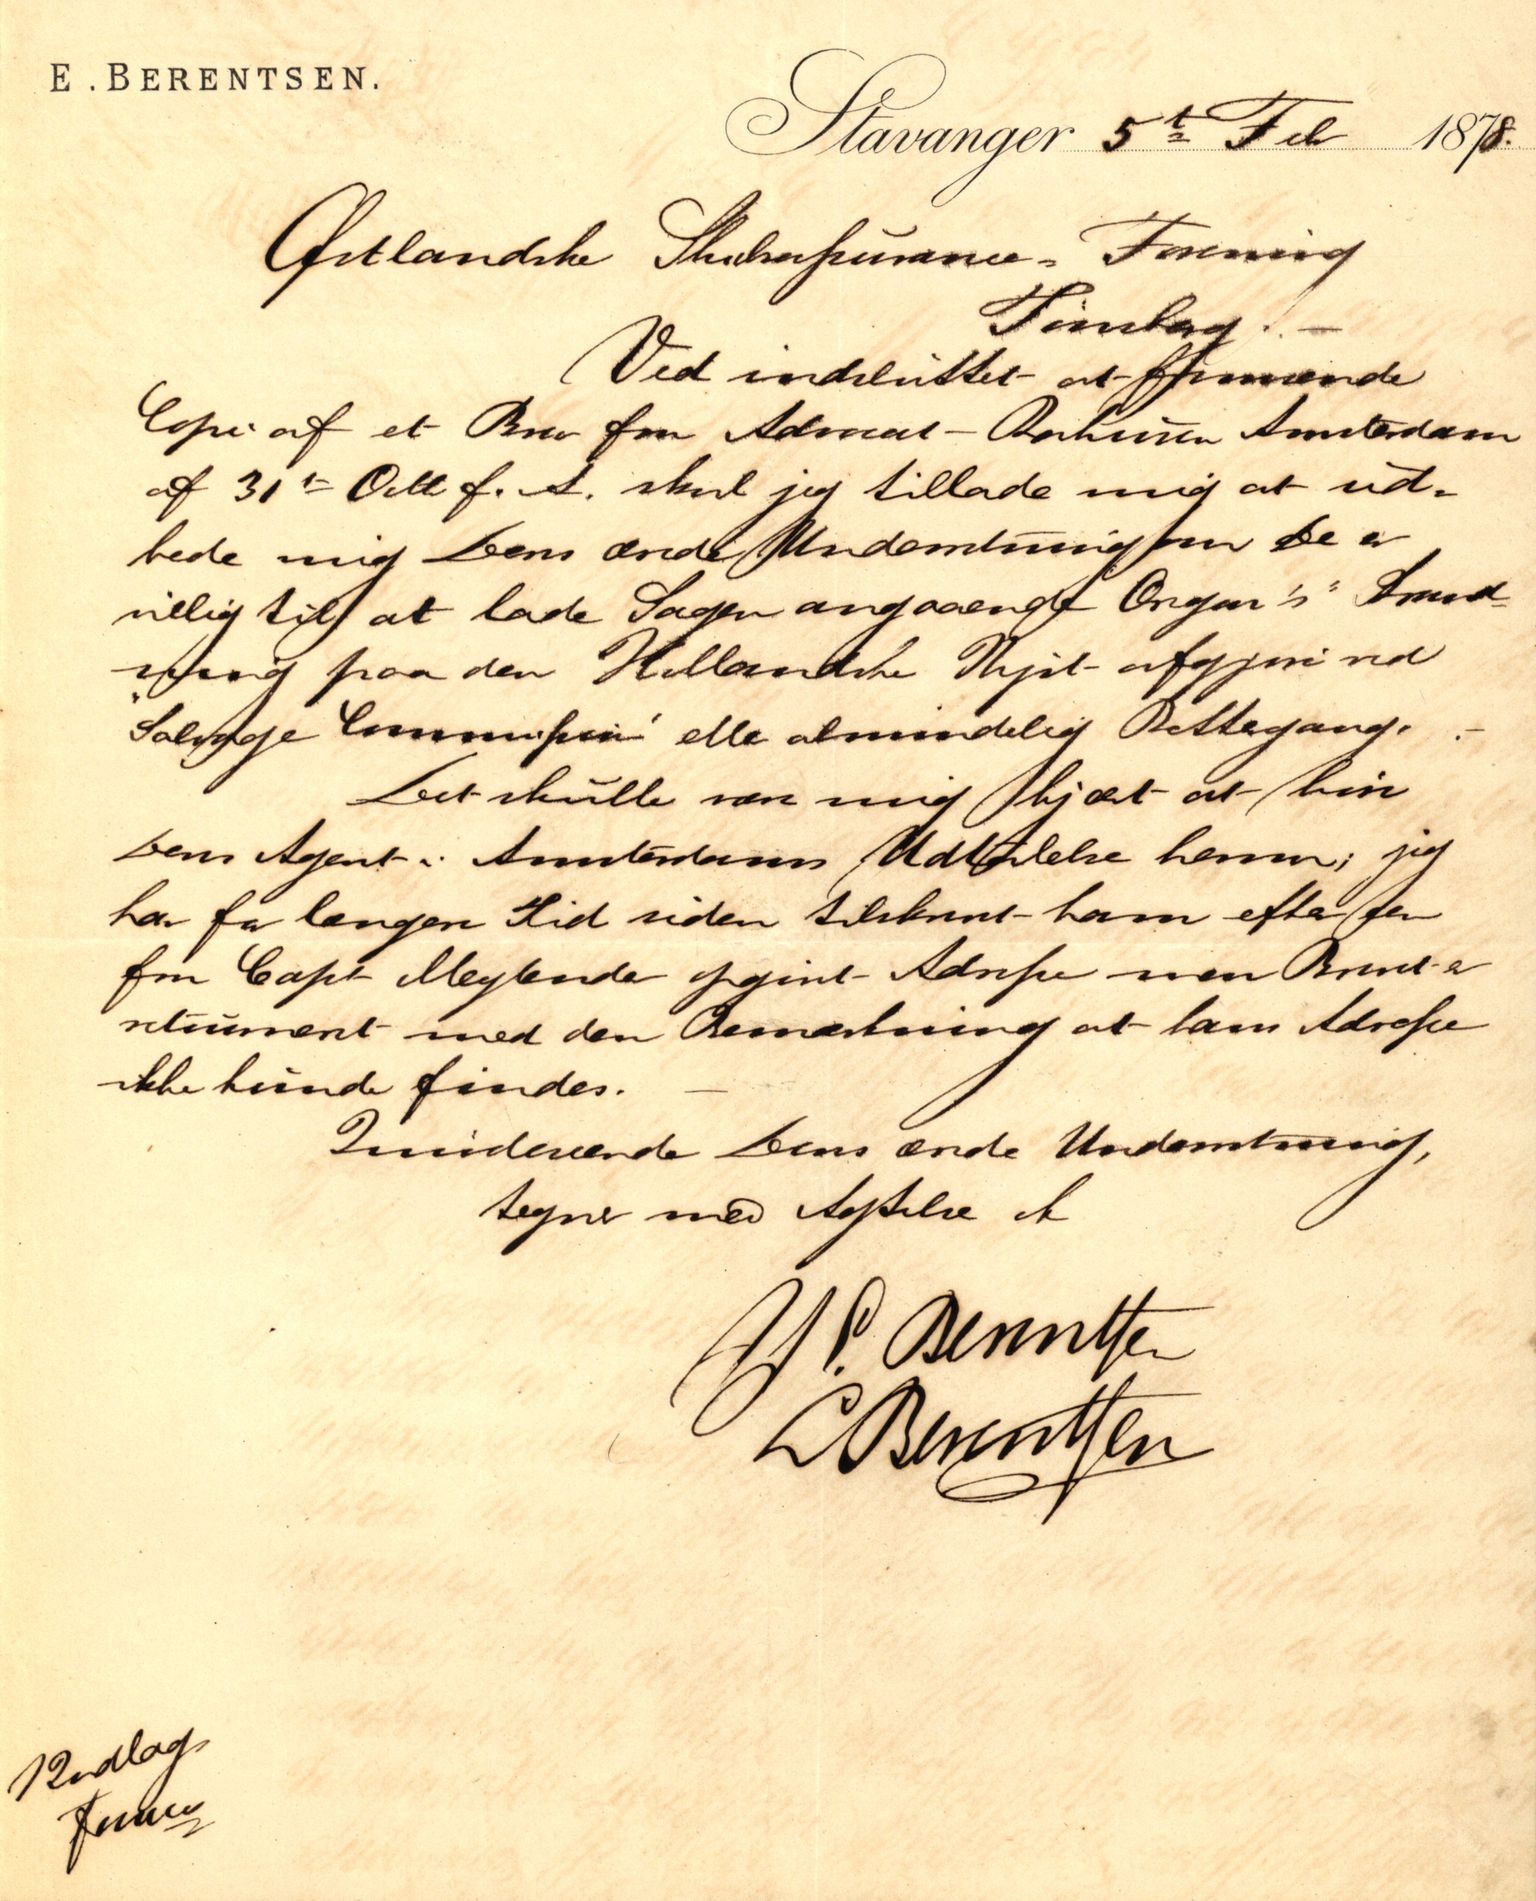 E. BERENTSEN.
Stavanger 5t Feb 1878.
Østlandske Skibsassurance- Forening
Tønsberg. -
Ved indsluttet at fremsende
Copi af et Brev fra Advocat Amsterdam
af 31t Octb f. A. skal jeg tillade mig at ud-
bede mig Deres ærede Underretning om De er
villig til at lade Sagen angaaende "Organ's" Strand-
ning paa den Hollandske Kyst afgjøre ved
"Salvage Commission" eller almindelig Rettegang. -
Det skulle være mig kjært at høre
Deres Agent i Amsterdams Udtalelse herom; jeg
har for længere Tid siden tilskrevet ham efter den
fra Capt opgivet Adresse men Brevet er
returneret med den Bemærkning at hans Adresse
ikke kunde findes. -
Imødeseende Deres ærede Underretning,
tegner med Agtelse
P. Berentsen
E Berentsen
1 Indlag